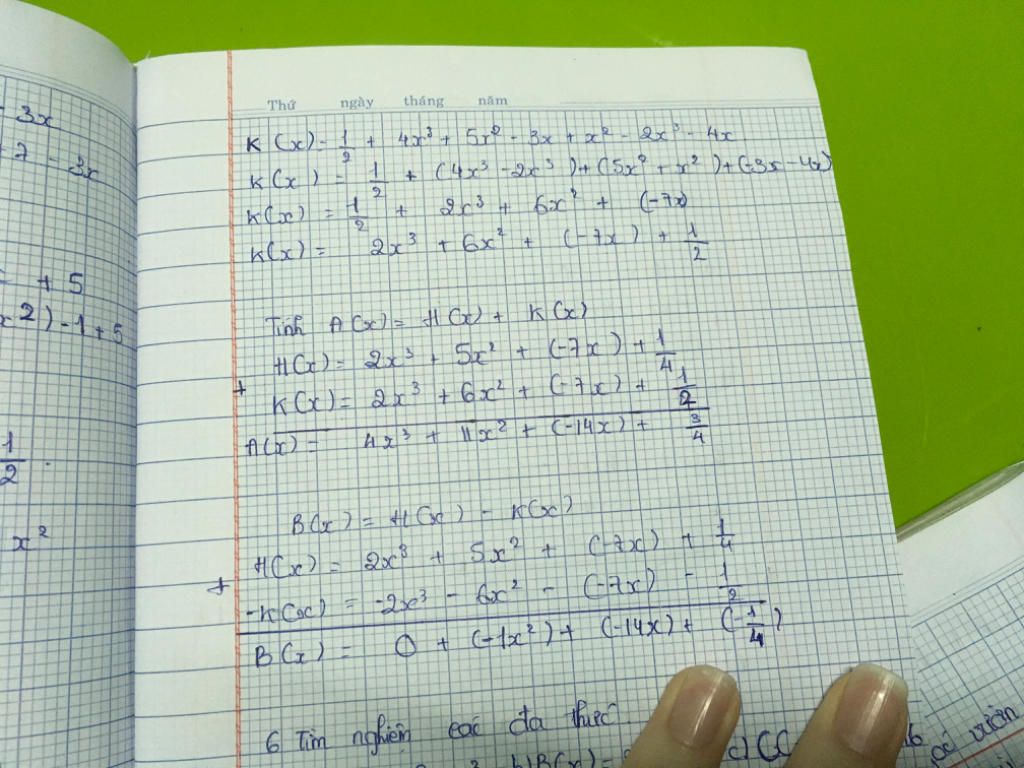 3x
7 - 3x
+ 5
x²) - 1 + 5
1/2
x²
Thứ ngày tháng năm
K(x) = 1/2 + 4x³ + 5x² - 3x + x² - 2x³ - 4x
K(x) = 1/2 + (4x³ - 2x³) + (5x² + x²) + (-3x - 4x)
K(x) = 1/2 + 2x³ + 6x² + (-7x)
K(x) = 2x³ + 6x² + (-7x) + 1/2
Tính A(x) = H(x) + K(x)
H(x) = 2x³ + 5x² + (-7x) + 1/4
+
K(x) = 2x³ + 6x² + (-7x) + 1/2
A(x) = 4x³ + 11x² + (-14x) + 3/4
B(x) = H(x) - K(x)
H(x) = 2x³ + 5x² + (-7x) + 1/4
+
-K(x) = -2x³ - 6x² - (-7x) - 1/2
B(x) = 0 + (-1x²) + (-14x) + (-1/4)
6 Tìm nghiệm các đa thức
b) B(x) =
c) C(
vườn